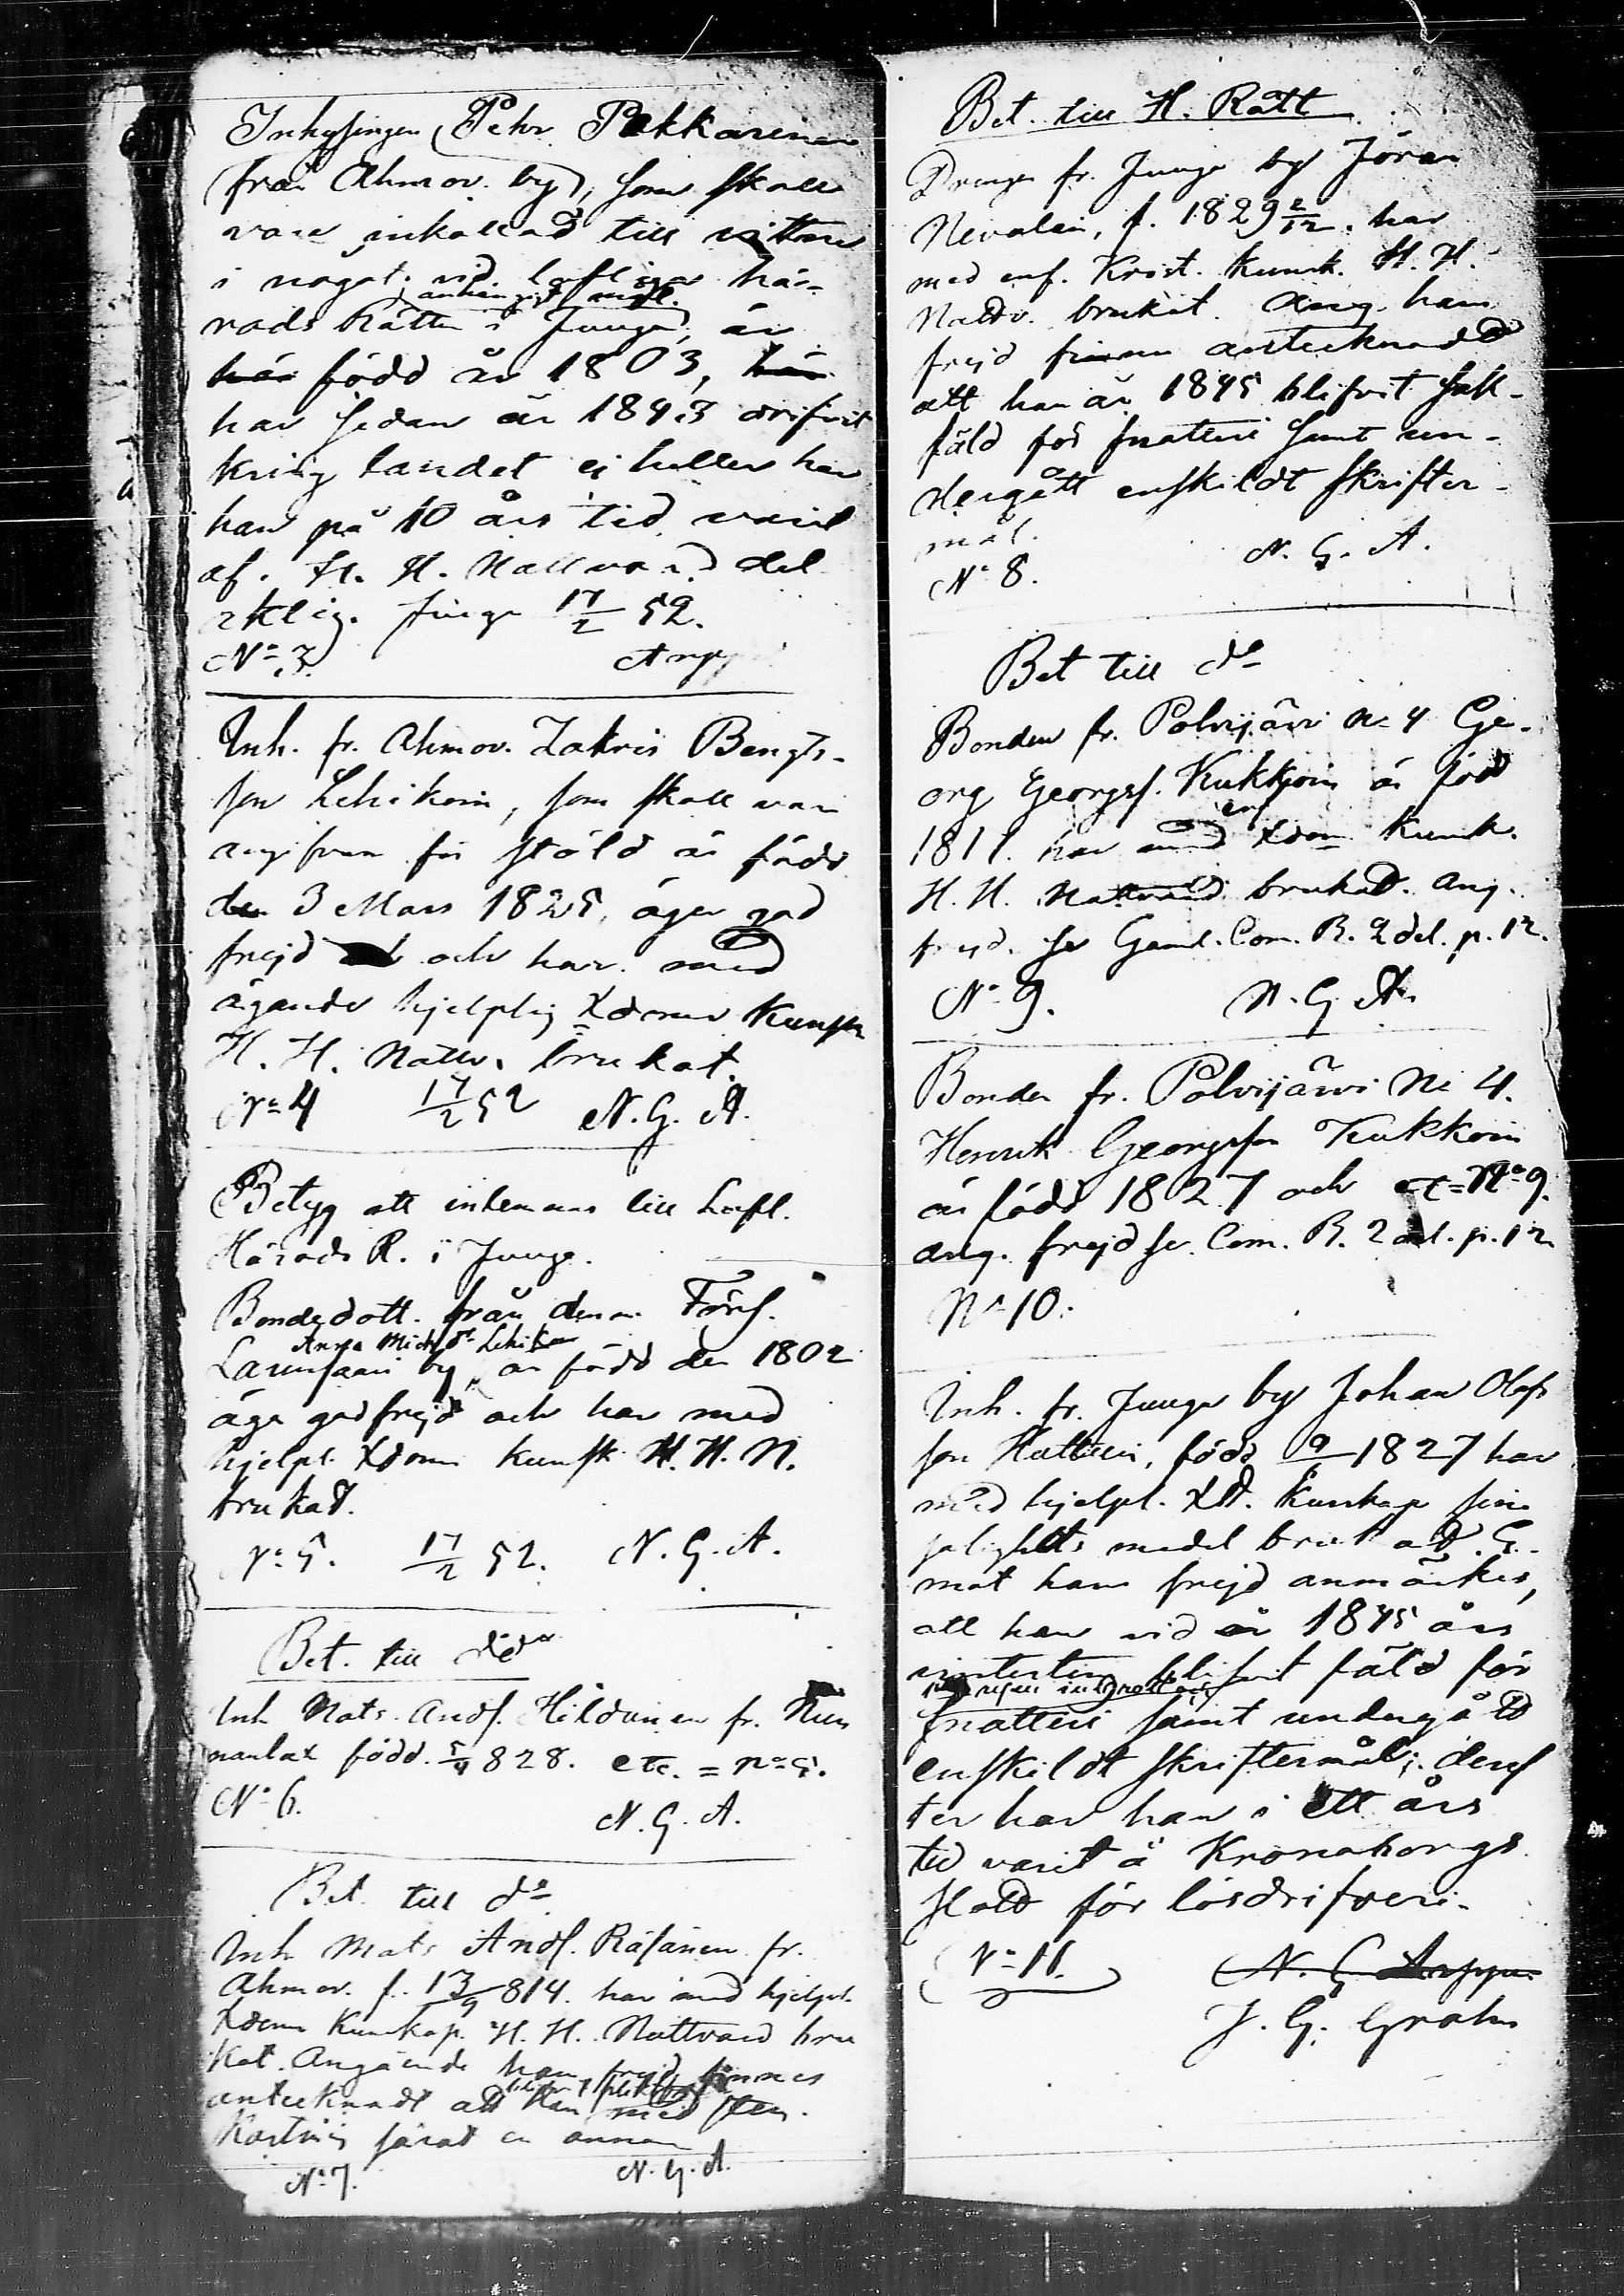 Inhysingen Pehr Pekkarinen
från Ahmov. by, som skall
vara inkallad till vittne
i något vid lofliga hä-
anhängigt mål.
rads Rätten i Juuga, är
här född år 1803,
har sedan år 1843 drifvit
kring landet ej heller har
han på 10 års tid varit
af H. H. Nattvard del
aktig. Juuga 17/2 52.
No 3. Arppe
Inh. fr. Ahmov. Zakris Bengts-
son Lehikoin, som skall vara
angifven för stöld är född
den 3 Mars 1825, äger god
frejd och har med
ägande hjelplig Xdoms Kunsk
H. H. Nattv. brukat.
No 4 17/2 52 N. G. A.
Betyg att inlemnas till Lofl.
Härads R. i Juuga.
Bondedott. från denna Förs.
Anna Michsdr Lehikoin
Larinsaari by är född den 1802
äga god frejd och har med
hjelpl. Xdoms kunsk H. H. N.
brukat.
No 5. 17/2 52. N. G. A.
Bet. till do
Inh Mats Andf. Hildunen fr. Nun
nanlax född. 5/4 828. etc. = No 5.
No 6. N. G. A.
Bet. till do
Inh Mats Andf. Räsänen fr.
Ahmov. f. 13/9 814. har med hjelpl.
Xdoms Kunskap H. H. Nattvard bru
kat. Angående hans frejd finnes
antecknadt att han med sten-
kastning sårat en annan
No 7. N. G. A.
Bet. till H. Rätt
Drengen fr. Juuga by Jöran
Nevalain, f. 1829 2/12. har
med enf. Krist. Kunsk. H. H.
Nattv. brukat. Ang. hans
frejd finnes antecknadt
att han år 1845 blifvit sak-
fäld för snatteri samt un-
dergått enskildt skrifter-
mål.
No 8. N. G. A.
Bet till do
Bonden fr. Polvijärvi No 4 Ge-
org Georgsf. Kukkoin är född
enf
1811. har med Xdom Kunsk.
H. H. Nattvard brukat. Ang.
frejd. se Gaml. Com. B. 2 del. p. 12.
No 9. N. G. A.
Bonden fr. Polvijärvi No 4.
Henrik Georgsson Kukkoin
är född 1827 och etc = No 9.
ang. frejd se Com. B. 2 del. p. 12
No 10.
Inh. fr. Juuga by Johan Olofs
son Huttuin, född 9/ 1827 har
med hjelpl. Xd. Kunskap sine
salighets medel brukat. E-
mot hans frejd anmärkes,
att han vid 1845 års
vinterting blifvit fäld för
snatteri samt undergått
enskildt skriftermål; deref
ter har han i ett års
tid varit å Kronoborgs
Hold för lösdrifveri.
No 11. N. G. Arppe.
J. G. Grahn